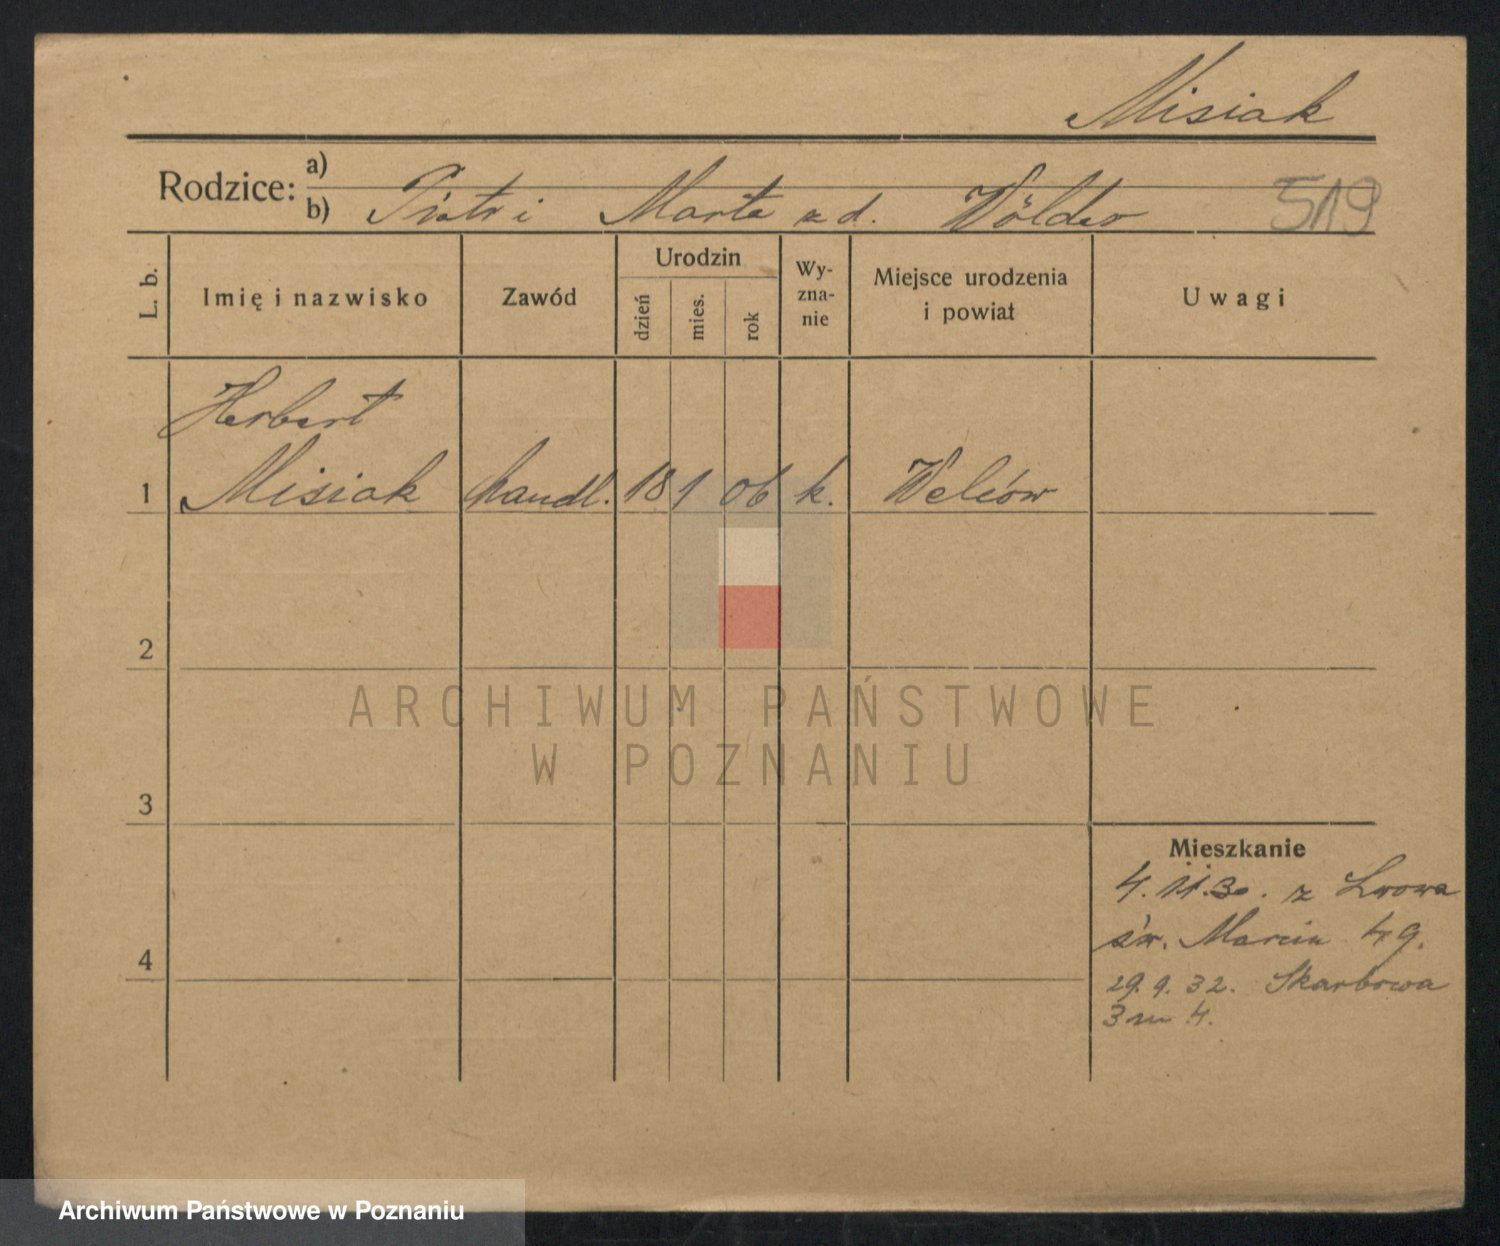 Misiak
Rodzice: a)
b) Piotr i Marta z d. Wölder
519
L. b.
Imię i nazwisko
Zawód
Urodzin
dzień
mies.
rok
Wy-
zna-
nie
Miejsce urodzenia
i powiat
Uwagi
Herbert
1 Misiak handl. 18 1 06 k. Welców
2
3
4
Mieszkanie
4.11.30. z Lwowa
św. Marcin 49.
29.9.32. Skarbowa
3 m 4.
ARCHIWUM PAŃSTWOWE
W POZNANIU
Archiwum Państwowe w Poznaniu